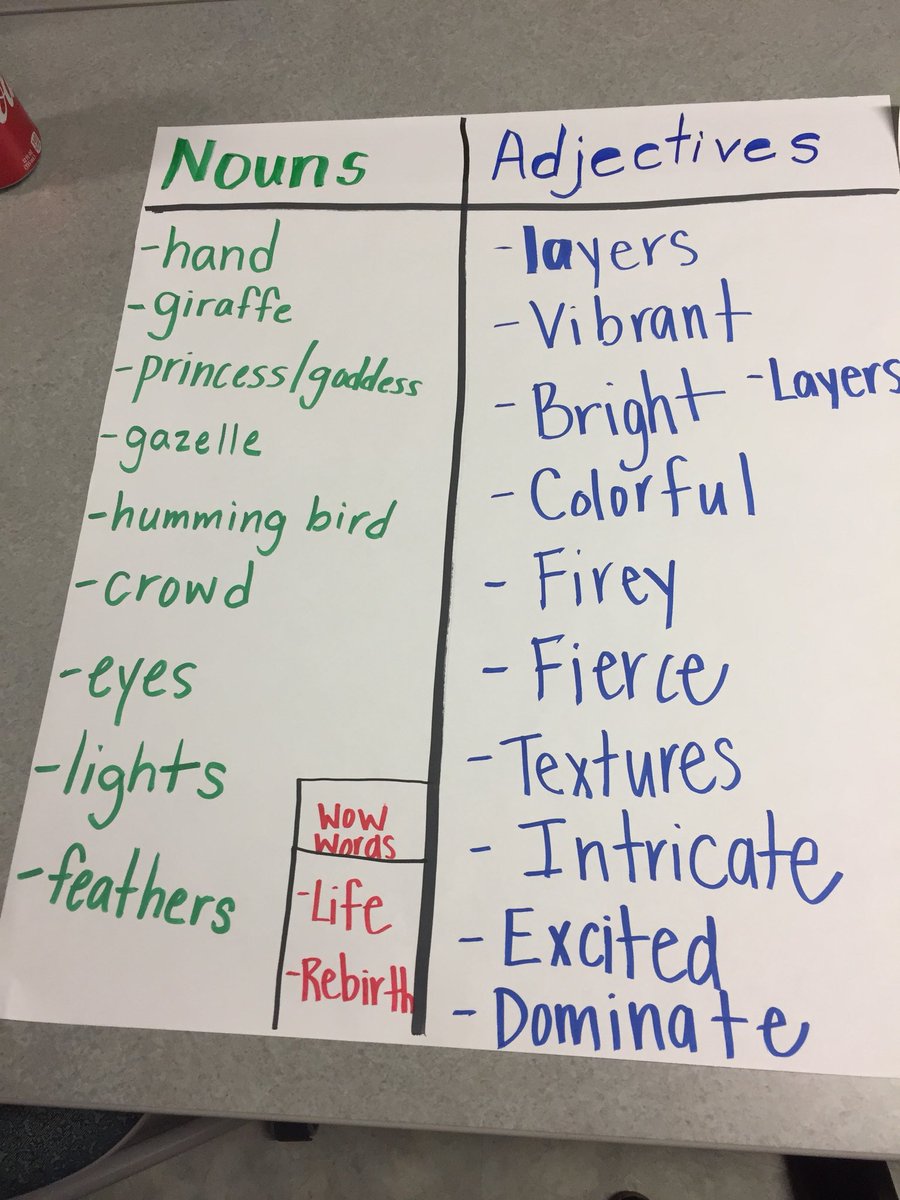 Nouns
-hand
-giraffe
-princess/goddess
-gazelle
-humming bird
-crowd
-eyes
-lights
-feathers
Wow
Words
-Life
-Rebirth
Adjectives
-layers
-Vibrant
-Bright -Layers
-Colorful
-Firey
-Fierce
-Textures
-Intricate
-Excited
-Dominate